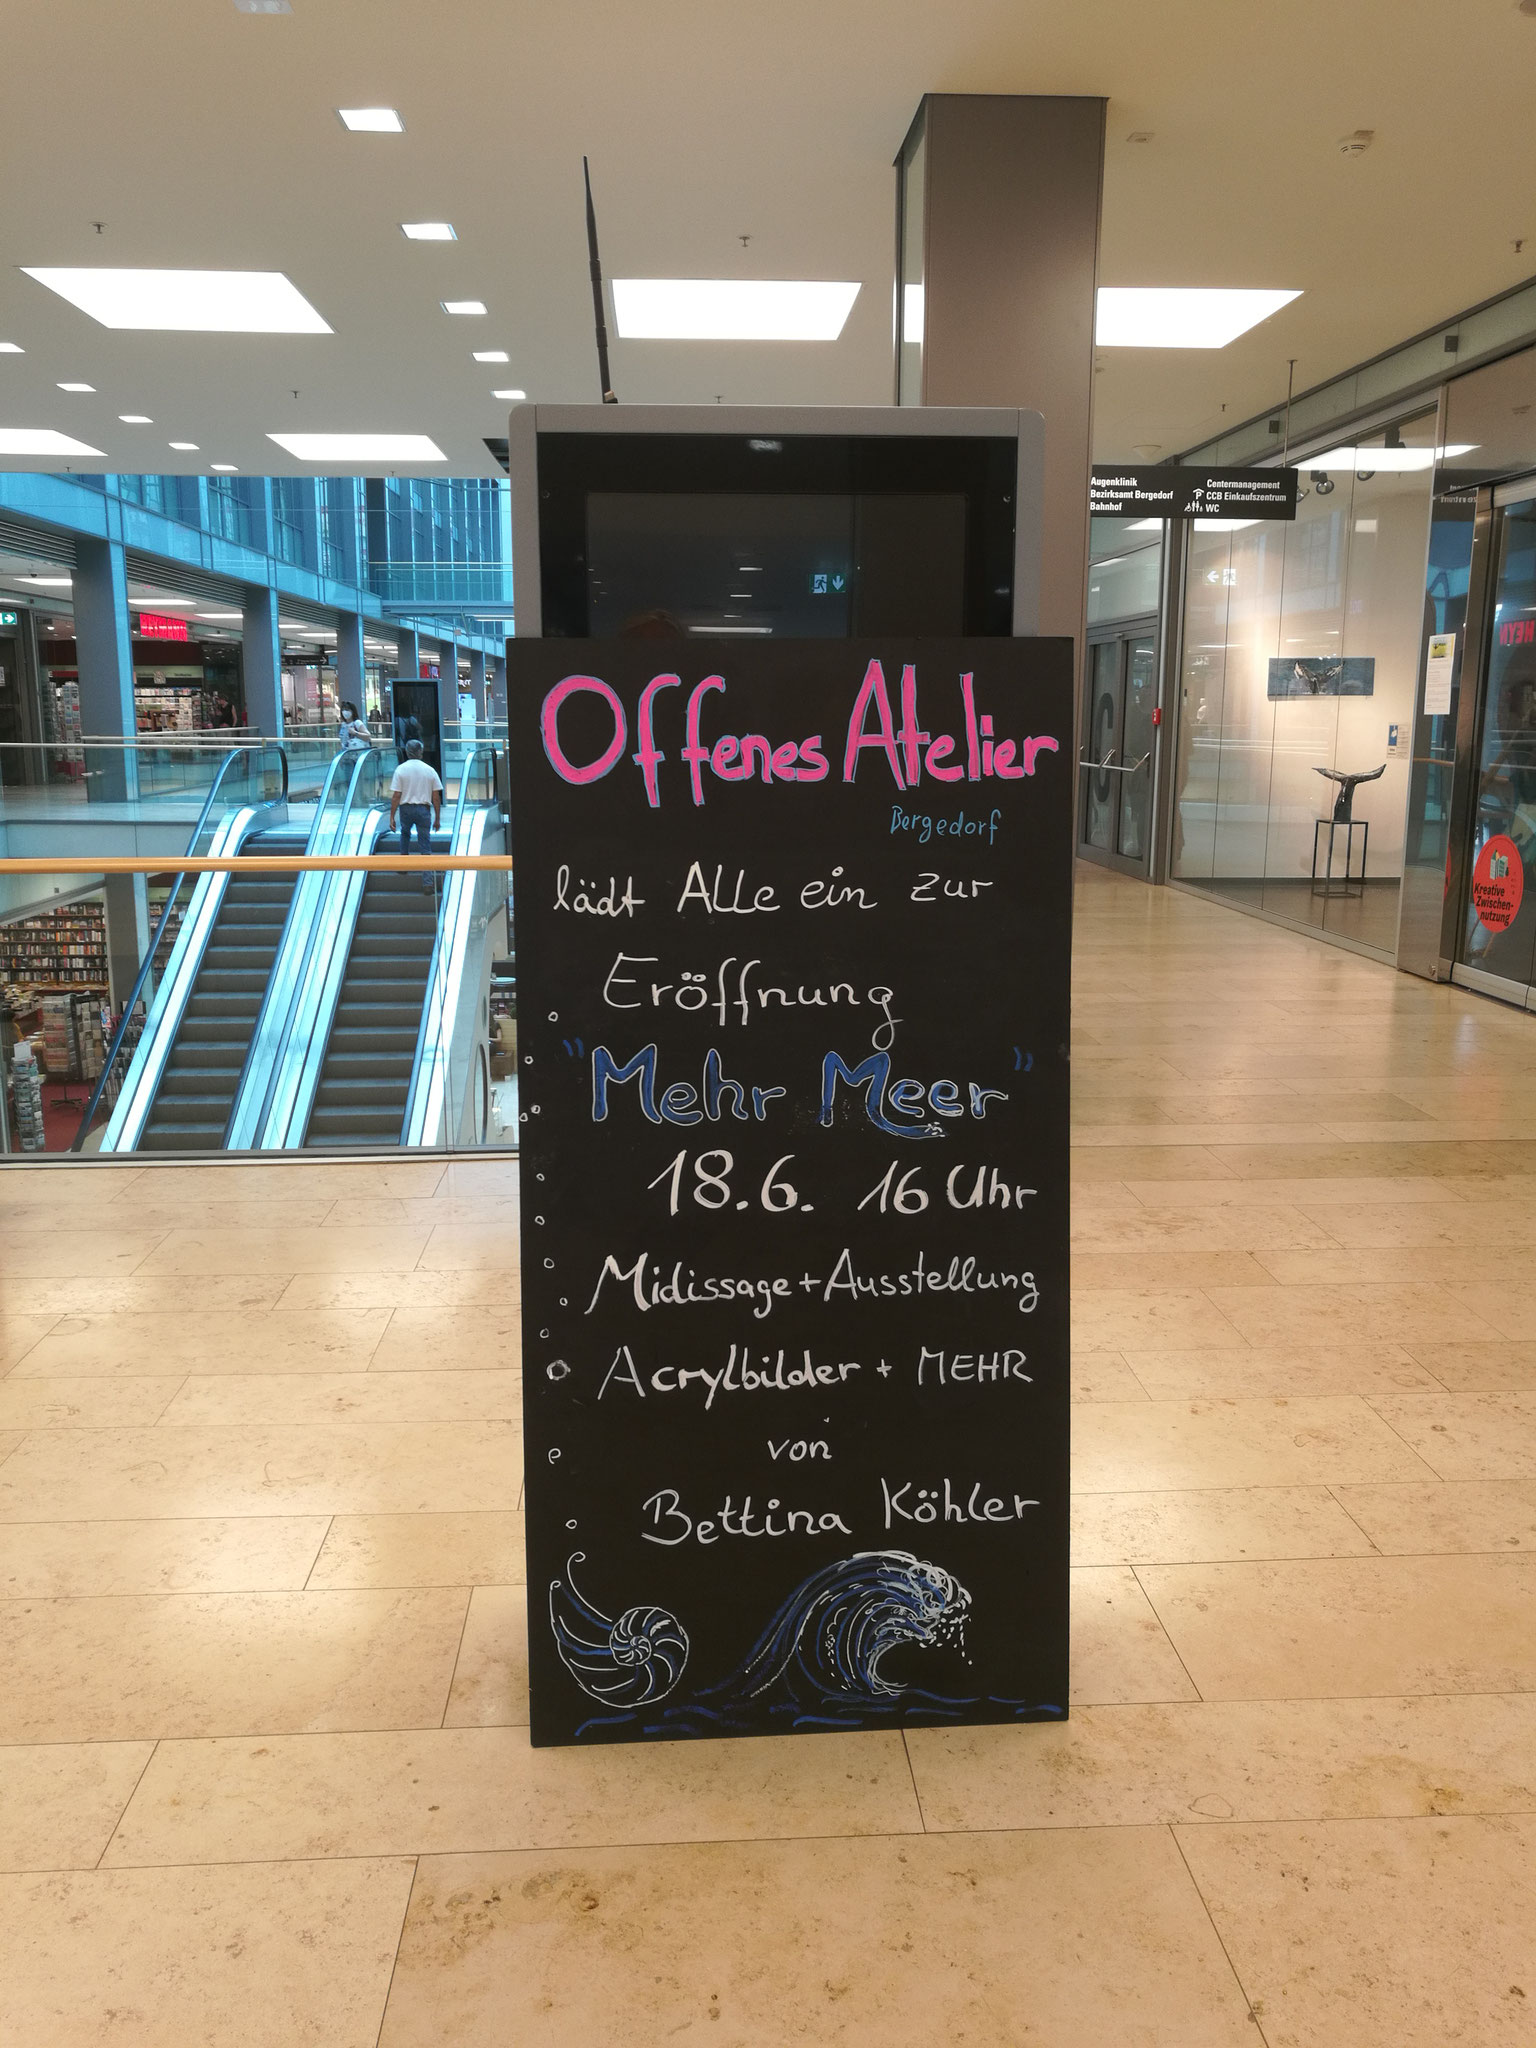 Augenklinik
Bezirksamt Bergedorf
Bahnhof
Centermanagement
CCB Einkaufszentrum
WC
Offenes Atelier
Bergedorf
lädt ALLe ein zur
Eröffnung
"Mehr Meer"
18.6. 16 Uhr
Midissage + Ausstellung
Acrylbilder + MEHR
von
Bettina Köhler
Kreative
Zwischen-
nutzung